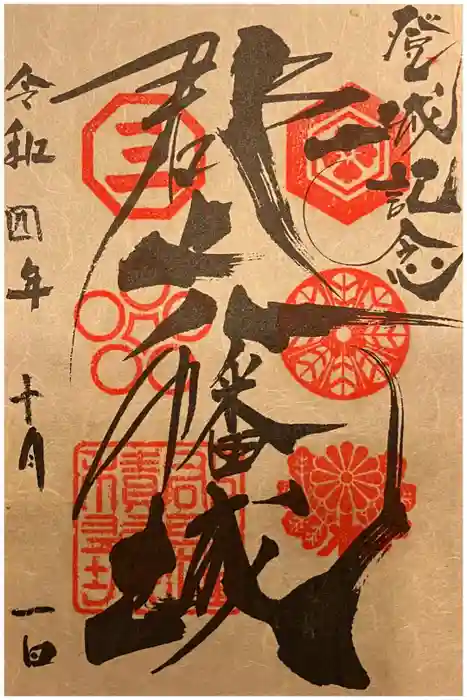 登城記念
郡上八幡城
三
令和四年 十月 一日